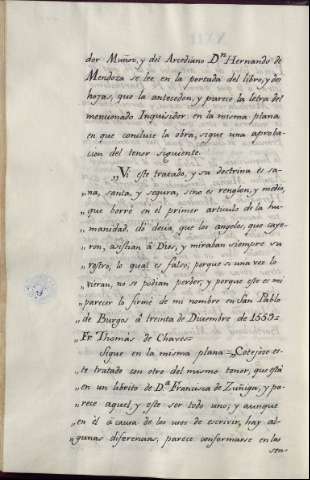 dor Muñoz, y del Arcediano Dn. Hernando de
Mendoza se lee en la portada del libro, y dos
hojas, que la anteceden, y parece la letra del
mencionado Inquisidor. en la misma plana
en que concluie la obra, sigue una aproba-
cion del tenor siguiente.
„Vi este tratado, y su doctrina es sa-
„na, santa, y segura, sino es renglon, y medio,
„que borrè en el primer articulo de la hu-
„manidad, do decia que los angeles, que caye-
„ron, asistian â Dios, y miraban siempre su
„rostro, lo qual es falso; porque si una vez lo
„vieran, no se podian perder; y porque este es mi
„parecer lo firmè de mi nombre en San Pablo
„de Burgos â treinta de Diciembre de 1559=
Fr. Thomàs de Chaves=
Sigue en la misma plana= Cotejose es-
te tratado con otro del mismo tenor, que està
„en un librito de Da. Francisca de Zuñiga, y pa-
„rece aquel, y este ser todo uno; y aunque
„en èl â causa de los vicios de escrivir, hay al-
„gunas diferencias, parece conformarse en las
sen-